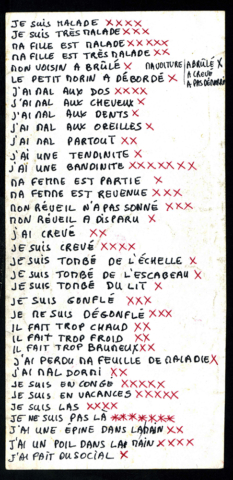 JE SUIS MALADE XXXX
JE SUIS TRÈS MALADE XXX
MA FILLE EST MALADE XXXXX
MA FILLE EST TRÈS MALADE XX
MON VOISIN A BRÛLÉ X MA VOITURE A BRÛLÉ X
A CREVÉ
LE PETIT MORIN A DÉBORDÉ X A PAS DÉMARRÉ
J'AI MAL AUX DOS XXXX
J'AI MAL AUX CHEVEUX X
J'AI MAL AUX DENTS X
J'AI MAL AUX OREILLES X
J'AI MAL PARTOUT XX
J'AI UNE TENDINITE X
J'AI UNE BANDINITE XXXXXXX
MA FEMME EST PARTIE X
MA FEMME EST REVENUE XXX
MON RÉVEIL N'A PAS SONNÉ XXX
MON RÉVEIL A DISPARU X
J'AI CREVÉ XX
JE SUIS CREVÉ XXXX
JE SUIS TOMBÉ DE L'ÉCHELLE X
JE SUIS TOMBÉ DE L'ESCABEAU X
JE SUIS TOMBÉ DU LIT X
JE SUIS GONFLÉ XXX
JE ME SUIS DÉGONFLÉ XXX
IL FAIT TROP CHAUD XX
IL FAIT TROP FROID XX
IL FAIT TROP BRUMEUX XX
J'AI PERDU MA FEUILLE DE MALADIE X
J'AI MAL DORMI XX
JE SUIS EN CONGÉ XXXXX
JE SUIS EN VACANCES XXXXX
JE SUIS LAS XXXX
JE NE SUIS PAS LÀ XXXXXXX
J'AI UNE ÉPINE DANS LA MAIN XX
J'AI UN POIL DANS LA MAIN XXXX
J'AI FAIT DU SOCIAL X